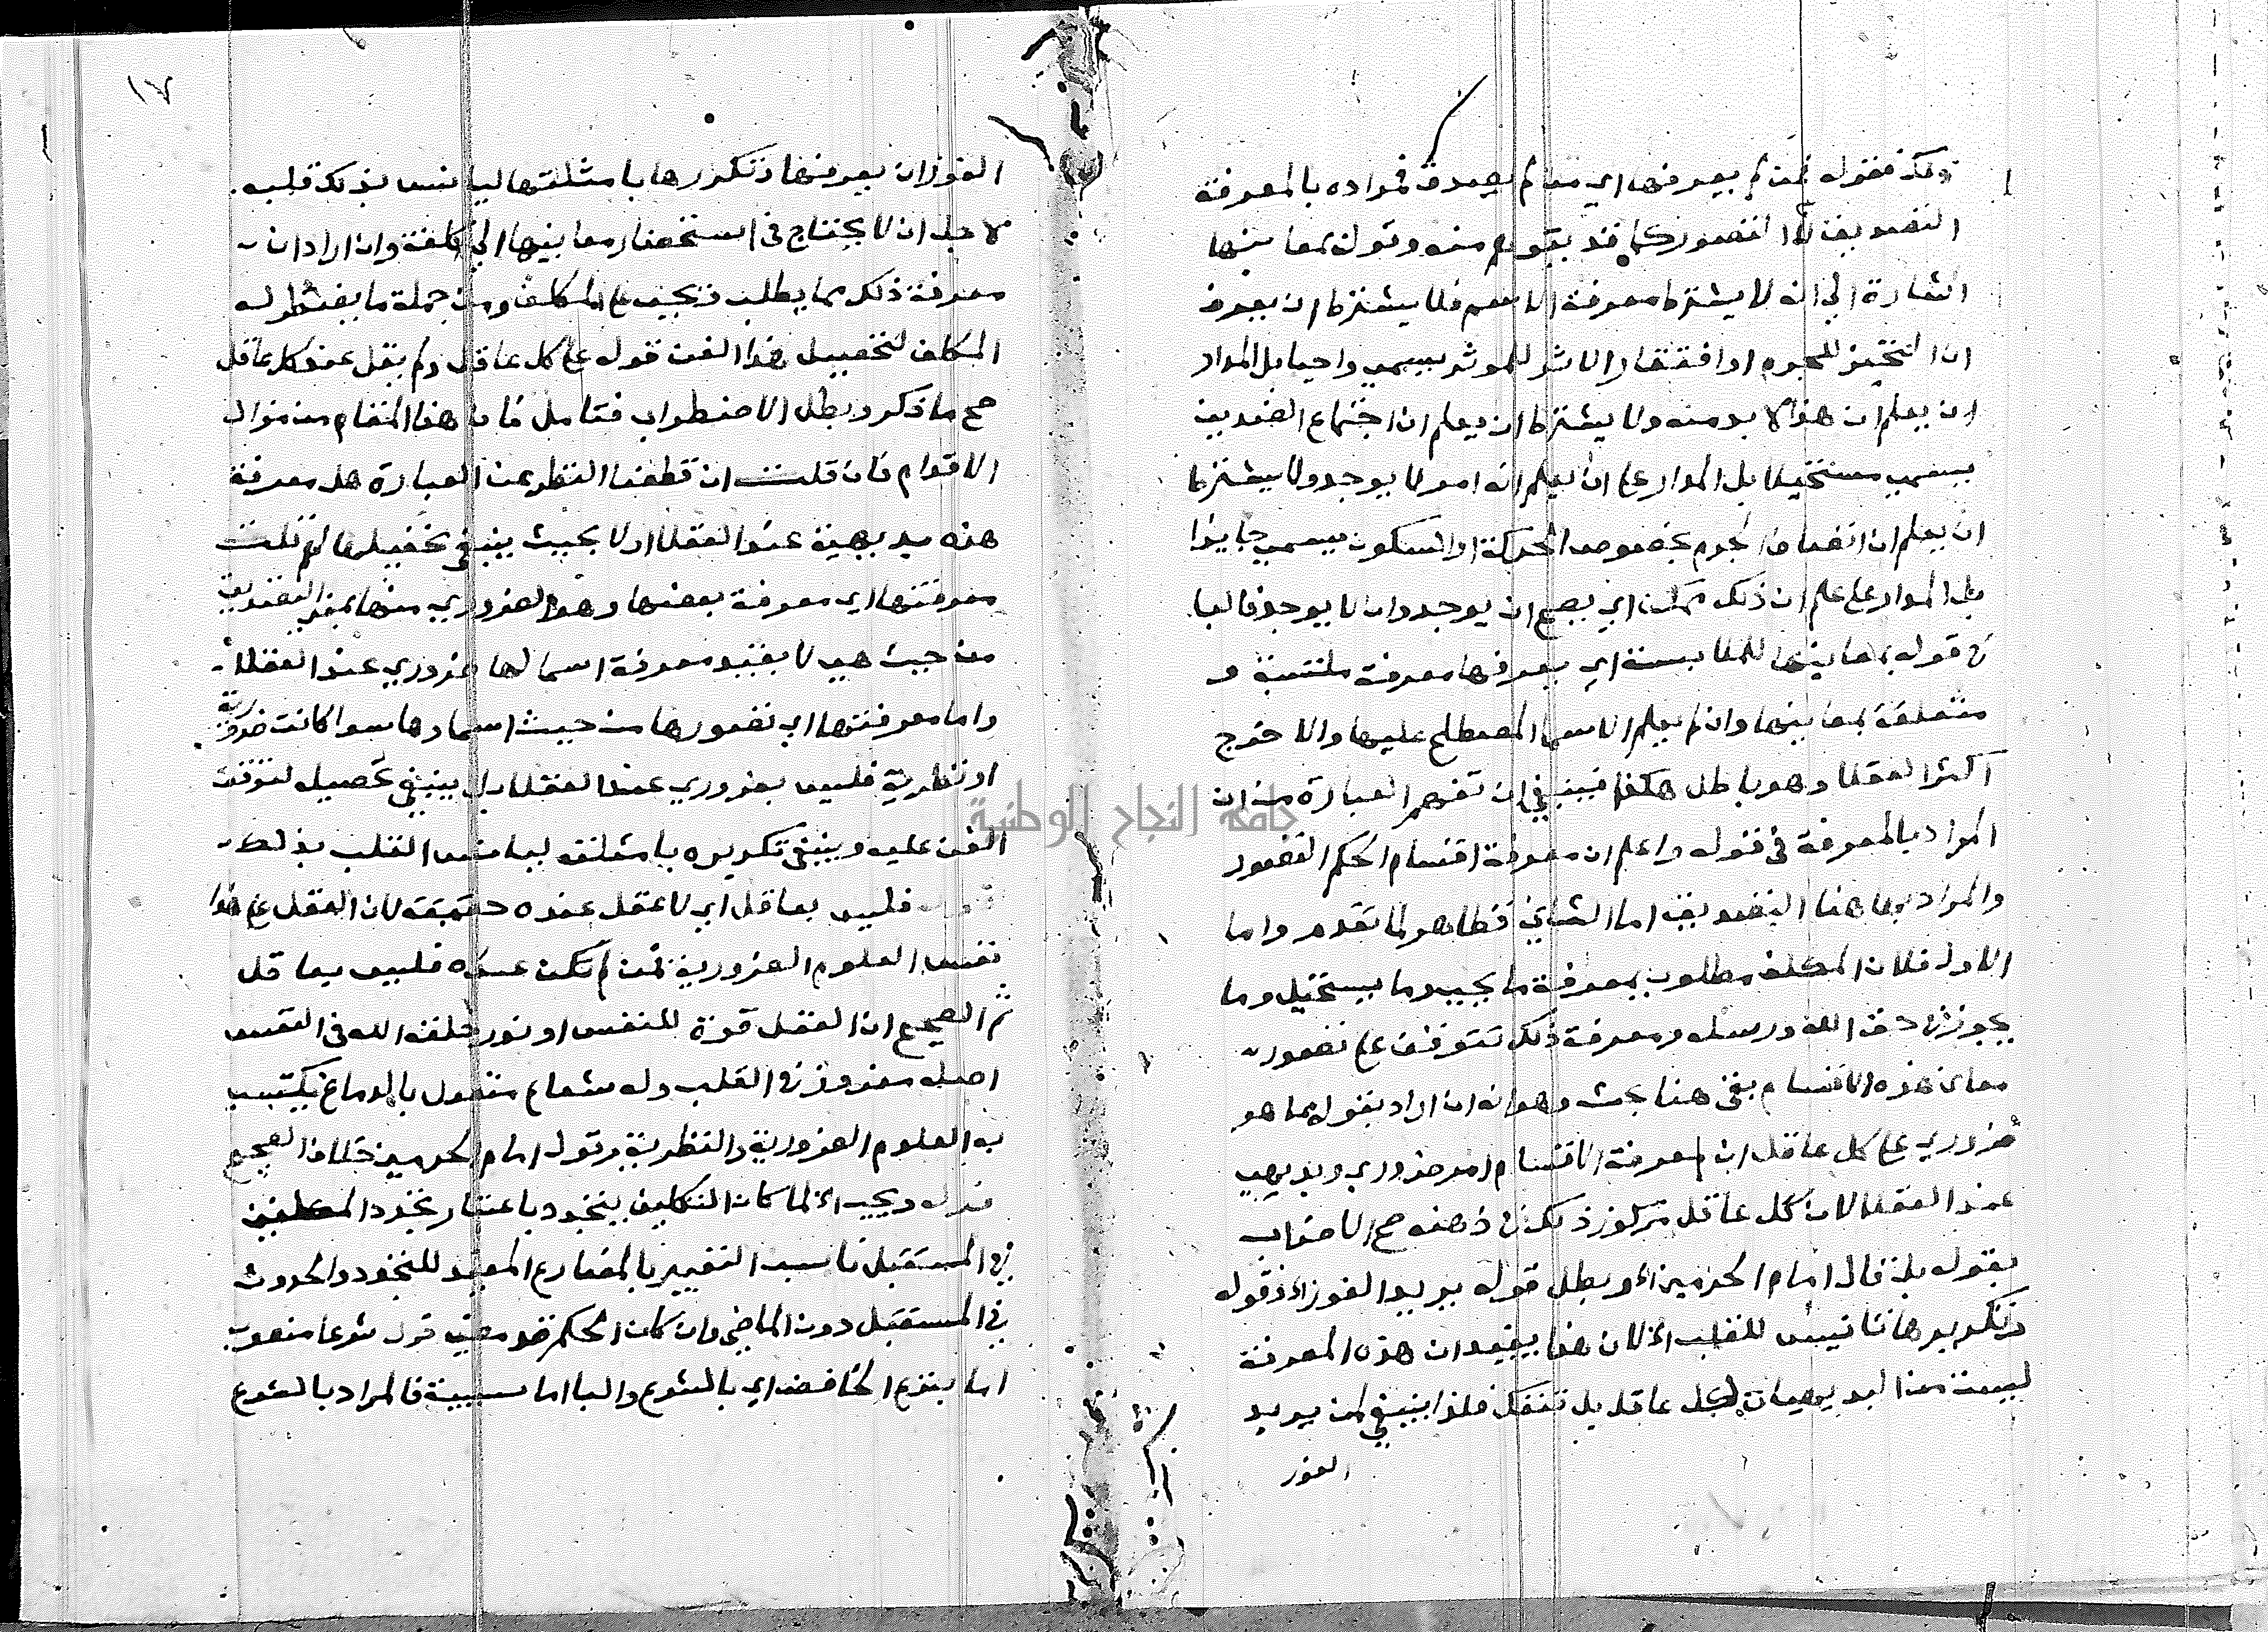 وتكذ فقوله فمن لم يعرفها اي من لم يصدق فمراده بالمعرفة
التصديق لا التصور كما قد يتوهم منه وقوله بمعانيها
اشارة الي انه لا يشترط معرفة الاسم فلا يشترط ان يعرف
ان التحيز للجرم او افتقار الاثر للموثر يسمي واجبا بل المدار
ان يعلم ان هذا لا بد منه ولا يشترط ان يعلم ان اجتماع الضدين
يسمي مستحيلا بل المدار علي ان يعلم انه امر لا يوجد ولا يشترط
ان يعلم ان اتصاف الجرم بخصوص الحركة او السكون يسمي جايزا
بل المدار علي علم ان ذلك ممكن اي يصح ان يوجد وان لا يوجد فالبا
في قوله بمعانيها للملابسة اي يعرفها معرفة ملتبسة و
متعلقة بمعانيها وان لم يعلم الاسما المصطلح عليها والا خرج
اكثر العقلا وهو باطل هكذا فينبغي ان تفهم العبارة من ان
المراد بالمعرفة في قوله واعلم ان معرفة اقسام الحكم التصور
والمراد بها هنا التصديق اما الثاني فظاهر لما تقدم واما
الاول فلان المكلف مطلوب بمعرفة ما يجب وما يستحيل وما
يجوز في حق الله ورسله ومعرفة ذلك تتوقف علي تصور
معاني هذه الاقسام بقي هنا بحث وهو انه ان اراد بقوله مما هو
ضروري علي كل عاقل ان معرفة الاقسام امر ضروري وبديهي
عند العقلا لان كل عاقل مركوز ذلك في ذهنه صح الاضراب
بقوله بل قال امام الحرمين الخ وبطل قوله يريد الفوز الخ فقوله
وتكريرها تانيس للقلب الخ لان هذا يفيد ان هذه المعرفة
ليست من البديهيات لكل عاقل بل تنفك فلذا ينبغي لمن يريد
الفوز
١٧
الفوز ان يعرفها وتكررها بامثلتها ليانس بذلك قلبه
لاجل ان لا يحتاج في استحضار معانيها الي كلفة وان اراد ان
معرفة ذلك مما يطلب ويجب علي المكلف ومن جملة ما يضطر له
المكلف لتحصيل هذا الفن قوله علي كل عاقل ولم يقل عند كل عاقل
صح ما ذكر وبطل الاضطراب فتامل فان هذا المقام من مزال
الاقوام فان قلت ان قطعنا النظر عن العبارة هل معرفة
هذه بديهية عند العقلا او لا بحيث ينبغي تحصيلها لهم قلت
معرفتها اي معرفة بعضها وهو الضروري منها بمعني التصديق
من حيث هي لا بقيد معرفة اسمائها ضروري عند العقلا
واما معرفتها اي تصورها من حيث اسماوها سوا كانت ضرورية
او نظرية فليس بضروري عند العقلا بل ينبغي تحصيله لتوقف
الفن عليه وينبغي تكريره بامثلته ليانس القلب بذلك
فليس بعاقل اي لا عقل عنده حقيقة لان العقل علي هذا
نفس العلوم الضرورية فمن لم تكن عنده فليس بعاقل
ثم الصحيح ان العقل قوة للنفس او نور خلقه الله في النفس
اصله مغروز في القلب وله شعاع متصل بالدماغ يكتسب
به العلوم الضرورية والنظرية وقول امام الحرمين خلاف الصحيح
قوله ويجب الخ لما كان التكليف يتجدد باعتبار تجدد المكلفين
في المستقبل ناسب التعبير بالمضارع المفيد للتجدد والحدوث
في المستقبل دون الماضي وان كان الحكم قد مضي قوله شرعا منصوب
اما بنزع الخافض اي بالشرع والبا اما سببية فالمراد بالشرع
جامعة النجاح الوطنية